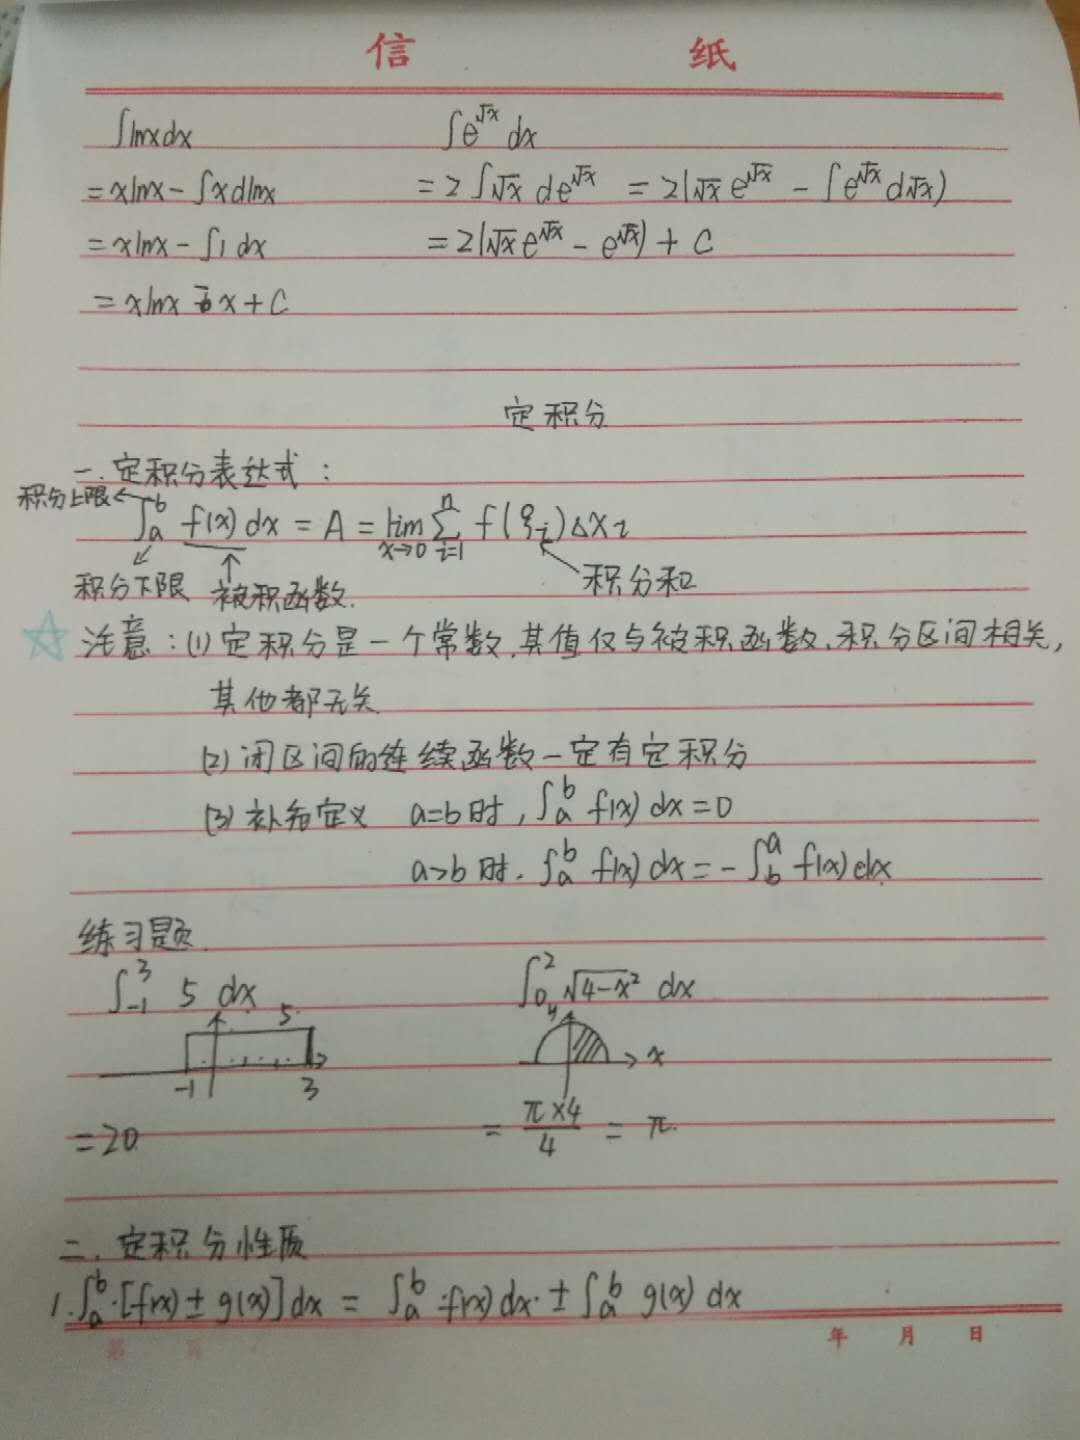 信 纸
∫lnxdx
= xlnx - ∫xdlnx
= xlnx - ∫1 dx
= xlnx - x + C
∫e^√x dx
= 2∫√x de^√x = 2(√x e^√x - ∫e^√x d√x)
= 2(√x e^√x - e^√x) + C
定积分
一.定积分表达式：
积分上限
∫_a^b f(x) dx = A = lim_{x→0} ∑_{i=1}^n f(ξ_i)ΔX_i
积分下限 被积函数. 积分和
注意：(1) 定积分是一个常数,其值仅与被积函数、积分区间相关,
其他都无关
(2) 闭区间的连续函数一定有定积分
(3) 补充定义 a=b时, ∫_a^b f(x) dx = 0
a>b时. ∫_a^b f(x) dx = - ∫_b^a f(x) dx
练习题.
∫_{-1}^3 5 dx
5
-1 3
= 20
∫_0^2 √4-x² dx
y
x
= π×4/4 = π.
二.定积分性质
1. ∫_a^b [f(x) ± g(x)] dx = ∫_a^b f(x) dx ± ∫_a^b g(x) dx
第 页 年 月 日